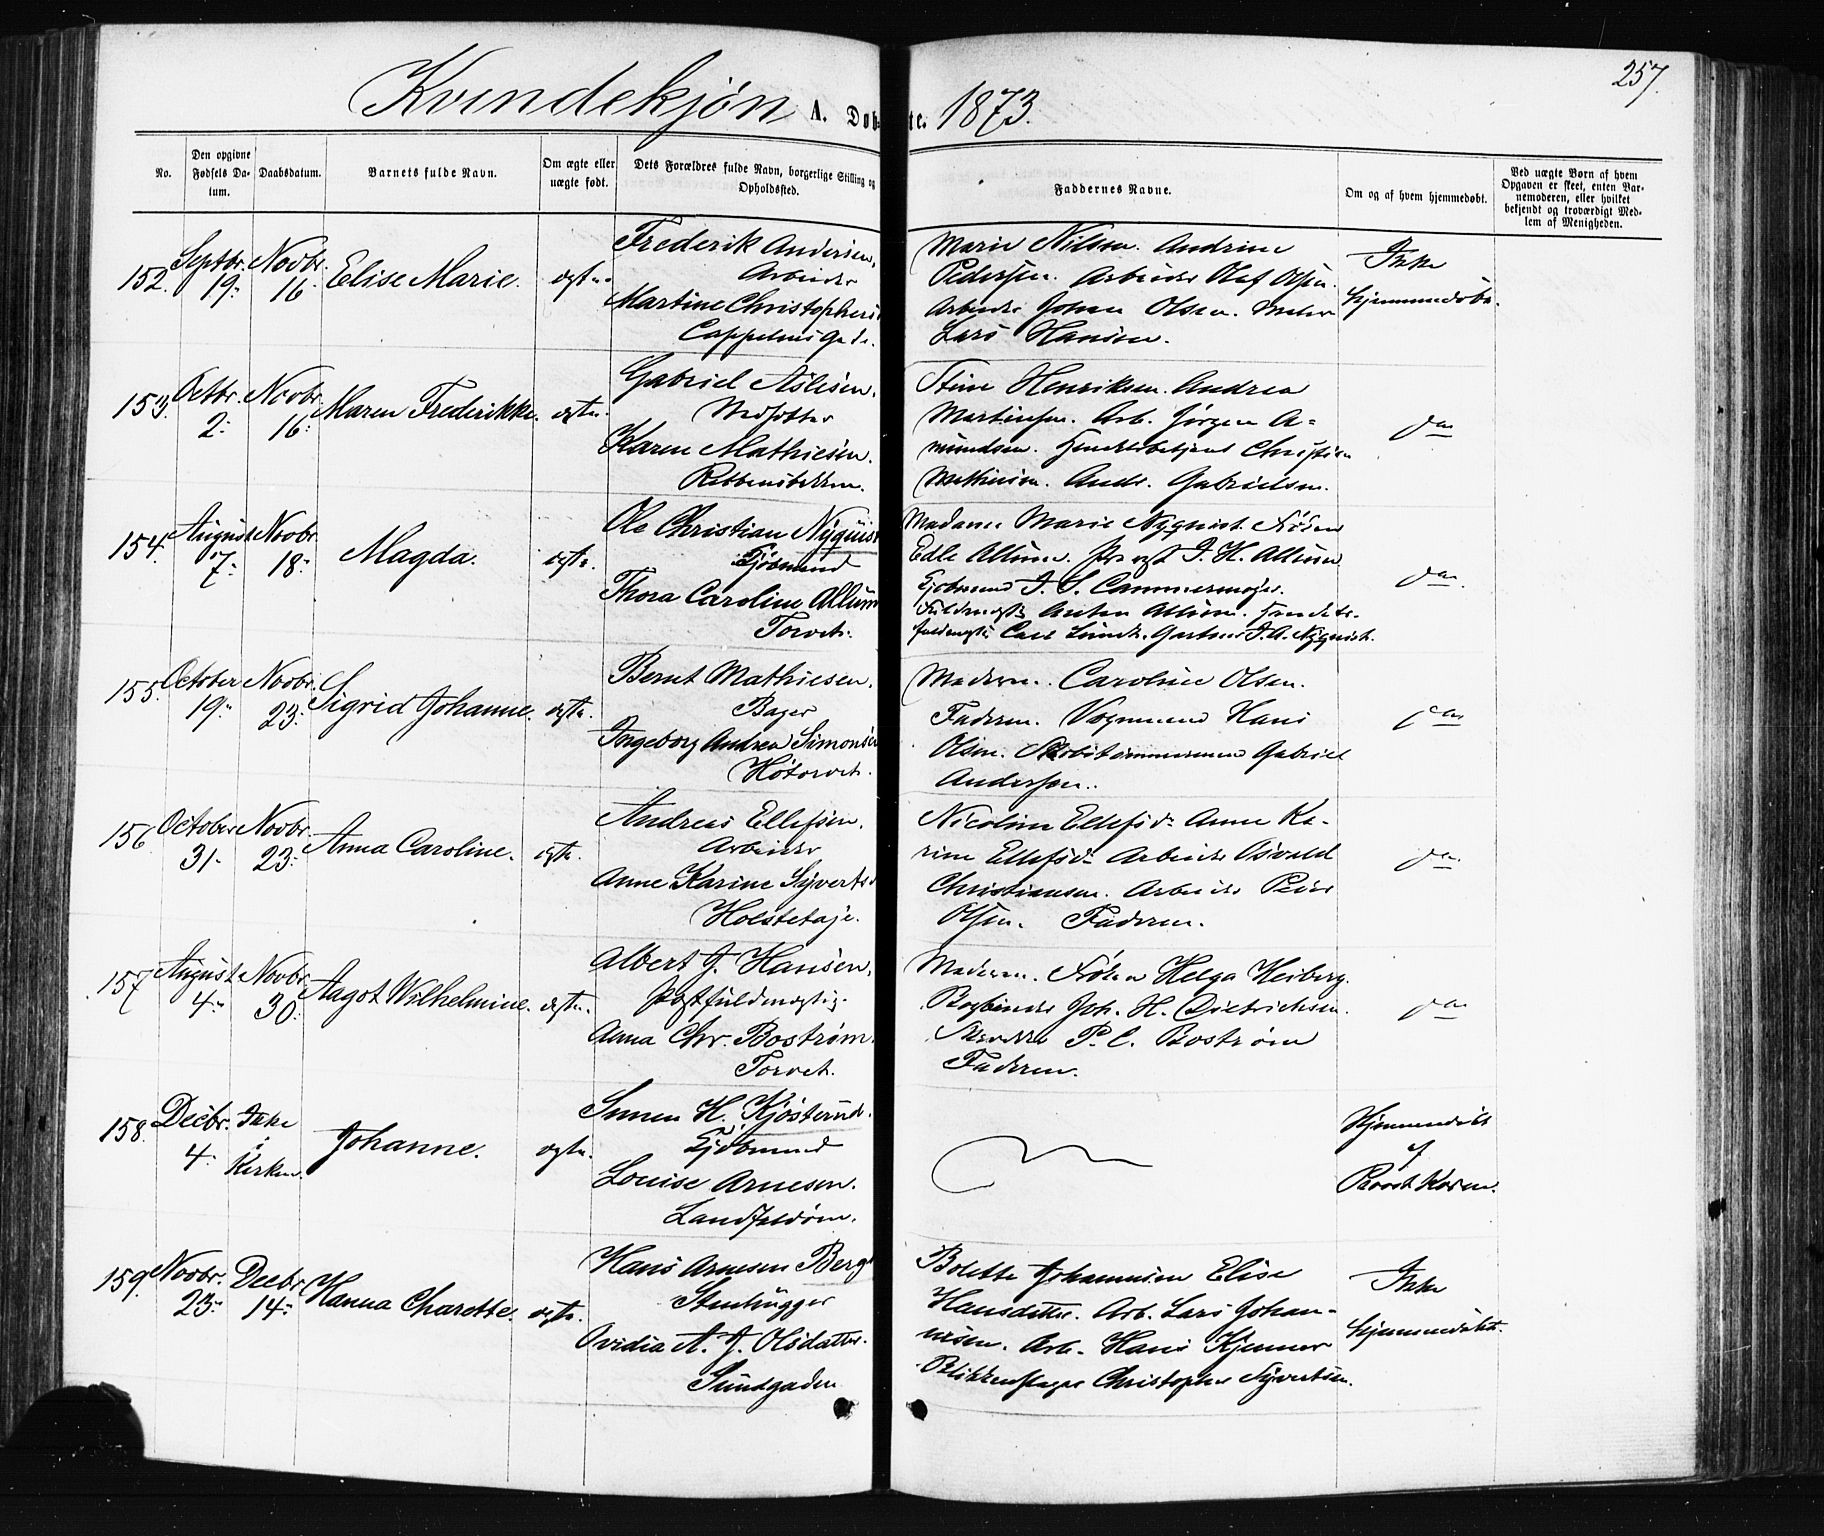 257.
Kvindekjøn A. Døbte. 1873.
No.
Den opgivne Fødsels Datum.
Daabsdatum.
Barnets fulde Navn.
Om ægte eller uægte født.
Dets Forældres fulde Navn, borgerlige Stilling og Opholdssted.
Faddernes Navne.
Om og af hvem hjemmedøbt.
Ved uægte Børn af hvem Opgaven er skeet, enten Barnemoderen, eller hvilket bekjendt og troværdigt Medlem af Menigheden.
152. Septbr. 19. Novbr. 16. Elise Marie. ægte.
Frederik Andersen.
Arbeider
Martine Christophers
Cappelens Gade.
Marie Nilsen. Andrine
Pedersen. Arbeider Olaf Olsen.
Arbeider Johan Olsen. Maler
Lars Hansen.
Ikke
hjemmedøbt.
153. Octbr. 2. Novbr. 16. Maren Frederikke. ægte.
Gabriel Aslesen.
Karen Mathiesen.
Stine Henriksen. Andrea
Martinsen. Arb. Jørgen A=
mundsen. Christian
Mathiesen. Andr. Gabrielsen.
do
154. August 7. Novbr. 18. Magda. ægte.
Ole Christian Nyquist
Kjøbmand
Thora Caroline Allum
Torvet.
Madame Marie Nyquist. Frøken
Edle Allum. J. H. Allum
Kjøbmand J. S. Cammermeyer.
Fuldmægtig Anton Allum. Handels-
fuldmægtig Carl Lund. Gartner J. A. Nyquist.
do
155. October 19. Novbr. 23. Sigrid Johanne. ægte.
Bernt Mathiesen.
Bager
Ingeborg Andrea Simonsen
Høtorvet.
Moderen. Caroline Olsen.
Faderen. Vognmand Hans
Olsen. Skibstømmermand Gabriel
Andersen.
do
156. October 31. Novbr. 23. Anna Caroline. ægte.
Andreas Ellefsen.
Arbeider
Anne Karine Syverts
Nicoline Ellefsd. Anne Ka-
rine Ellefsd. Arbeider Osvald
Christiansen. Arbeider Peder
Olsen. Faderen.
do
157. August 4. Novbr. 30. Aagot Wilhelmine. ægte.
Albert J. Hansen.
Postfuldmægtig.
Anna Chr. Bostrøm.
Torvet.
Moderen. Frøken Helga Heiberg.
Bogbinder Joh. H. Dietrichsen.
P. C. Bostrøm
Faderen.
do
158. Decbr. 4. Ikke i Kirken. Johanne. ægte.
H. Kjøsterud.
Kjøbmand
Louise Arnesen.
Hjemmedøbt
af
Provst Koren.
159. Novbr. 23. Decbr. 14. Hanna Charette. ægte.
Hans Arnesen Berg
Stenhugger
Ovidia A. J. Olsdatter.
Sundgaden
Bolette Johannsen Elise
Hansdatter. Arb. Lars Johan-
nesen. Arb. Hans Kjenner
Blikkenslager Christopher Syvertsen.
Ikke
hjemmedøbt.